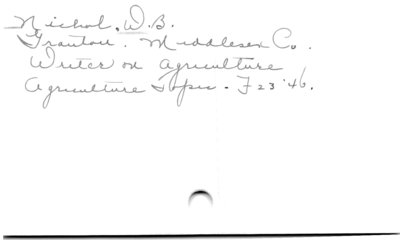 Nichol, W.B.
Granton. Middlesex Co.
Writer on agriculture
Agriculture Topic - F 23 '46.